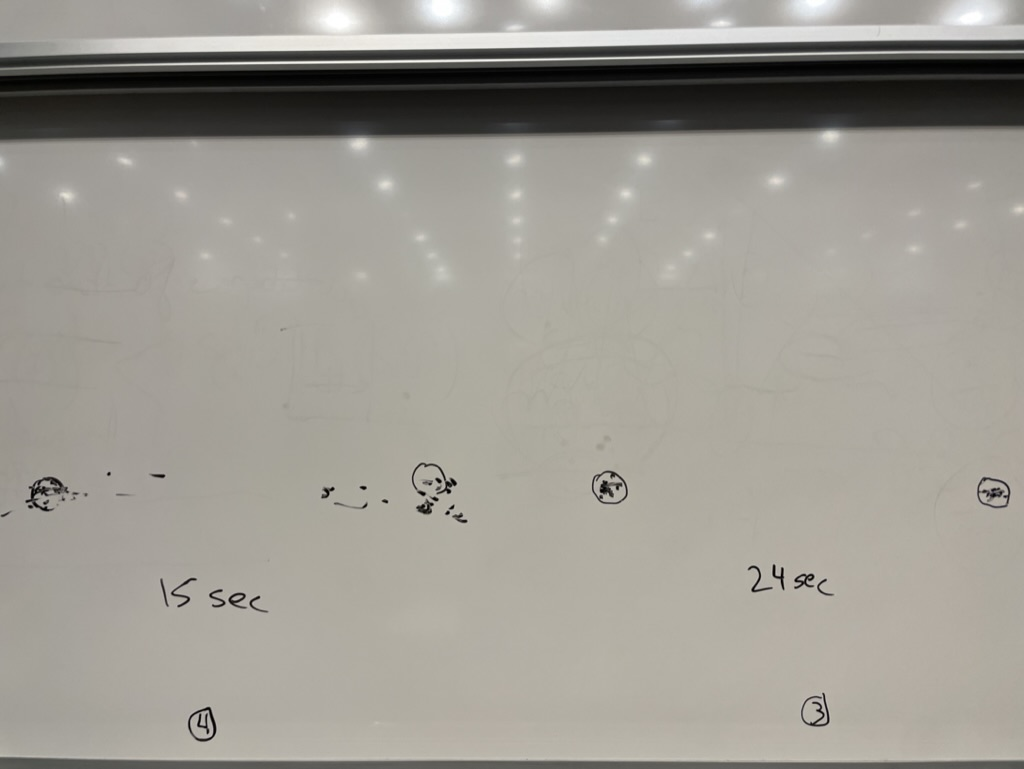 15 sec
24 sec
4
3